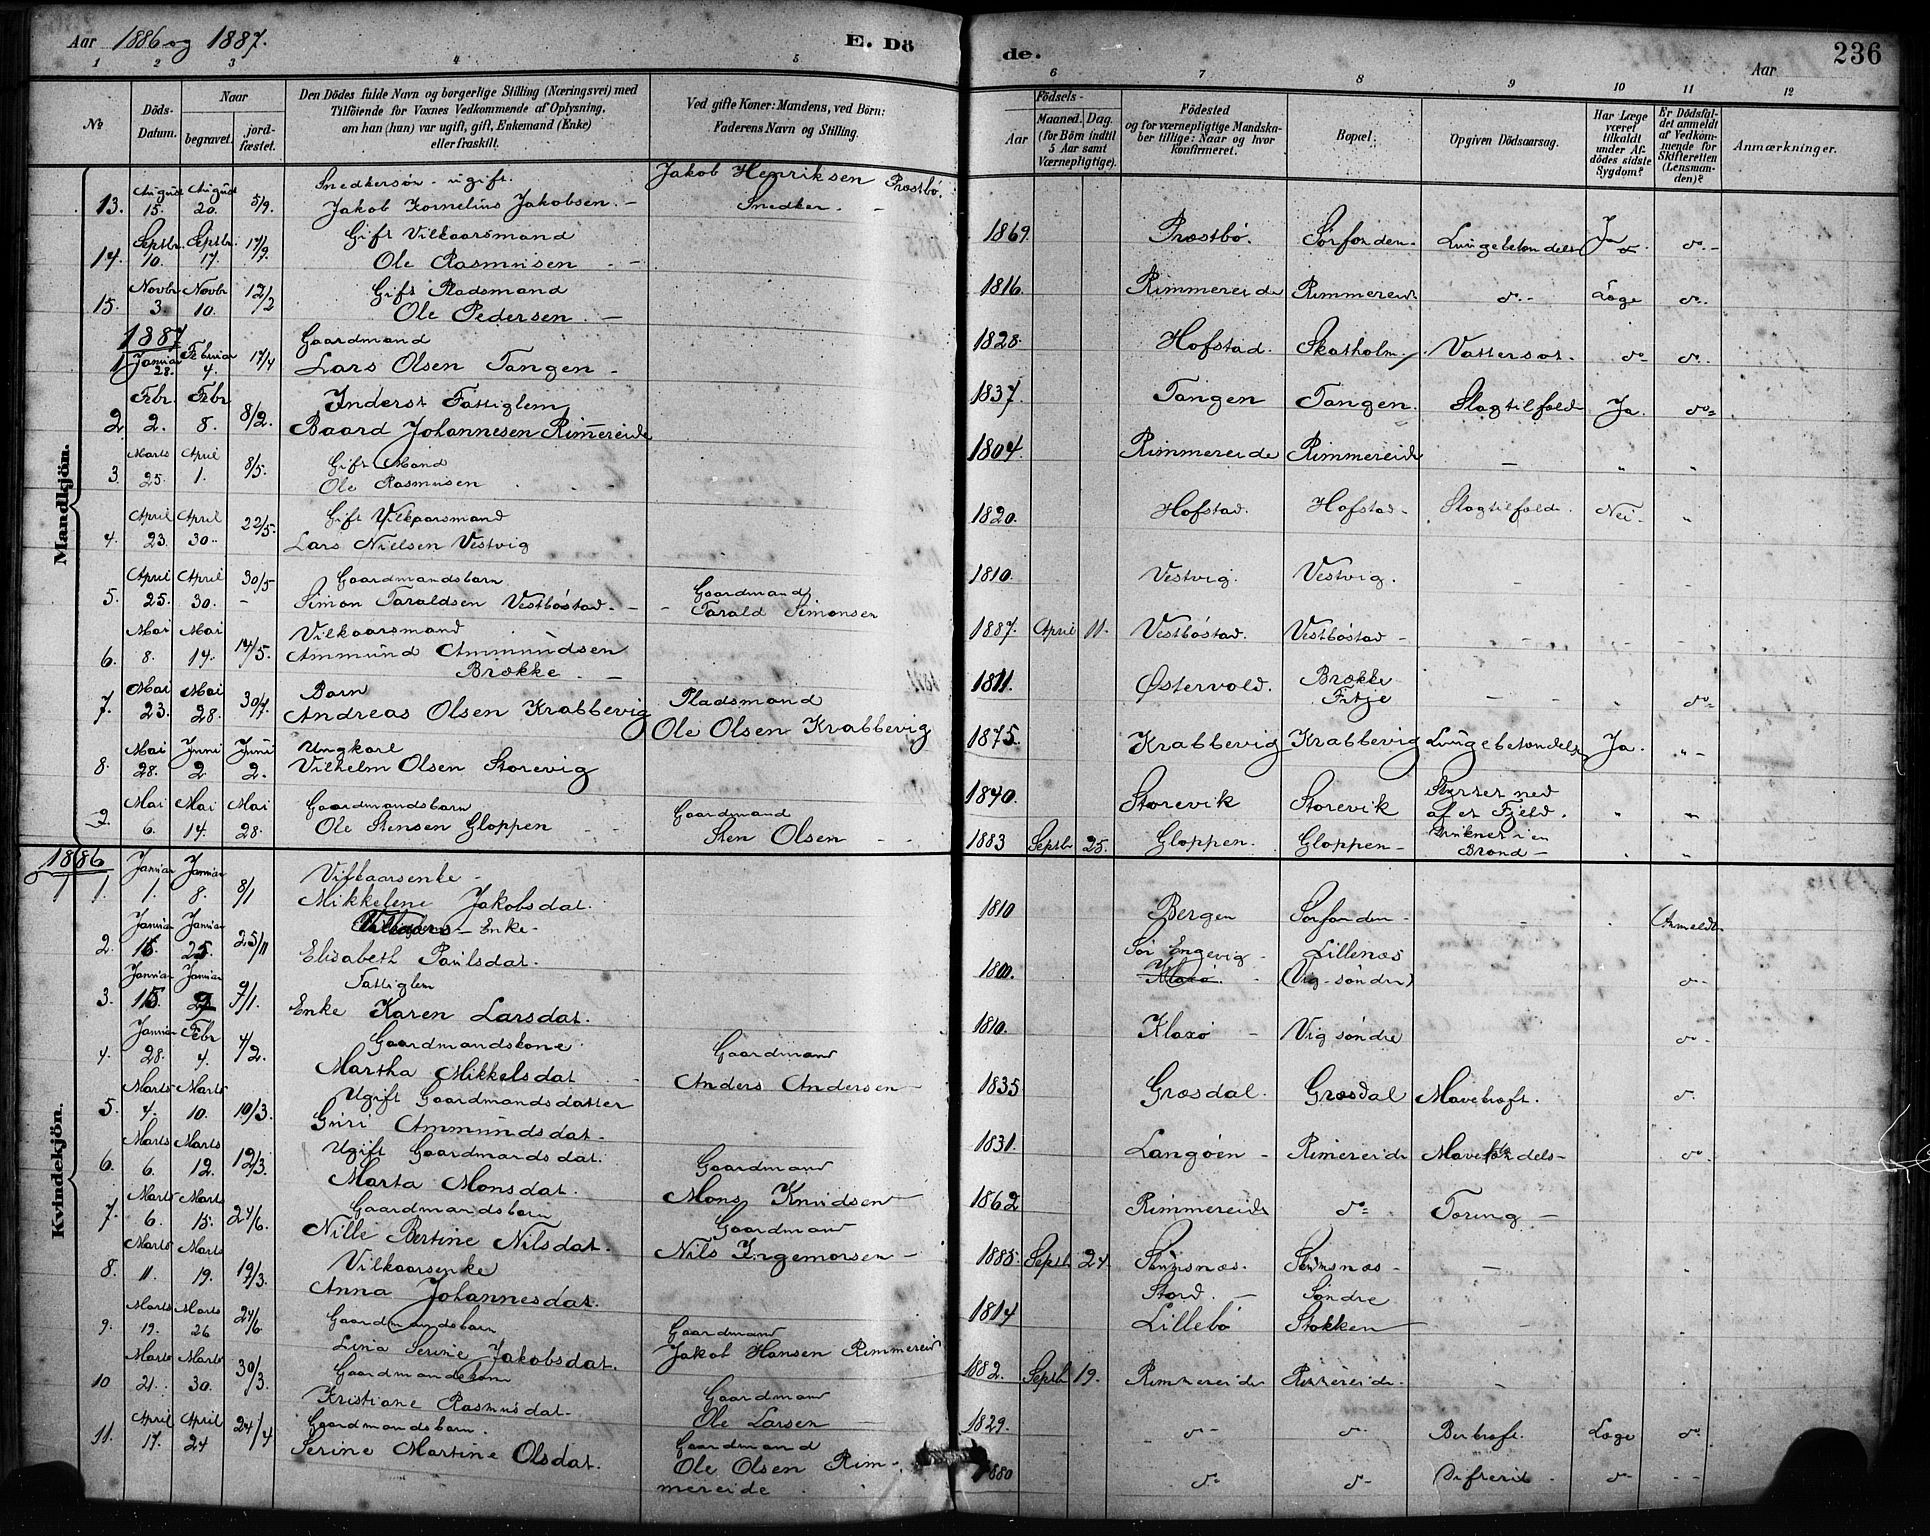 Aar 1886 og 1887.
E. Dö
de.
Aar
236
1 2 3 4 5 6 7 8 9 10 11 12
№
Döds-
Datum.
Naar
begravet.
jord-
fæstet.
Den Dödes fulde Navn og borgerlige Stilling (Næringsvei) med
Tilföiende for Voxnes Vedkommende af Oplysning,
om han (hun) var ugift, gift, Enkemand (Enke)
eller fraskilt.
Ved gifte Koner: Mandens, ved Börn:
Faderens Navn og Stilling.
Födsels-
Aar
Maaned. Dag.
(for Börn indtil
5 Aar samt
Værnepligtige).
Födested
og for værnepligtige Mandska-
ber tillige: Naar og hvor
konfirmeret.
Bopæl.
Opgiven Dödsaarsag.
Har Læge
været
tilkaldt
under Af-
dödes sidste
Sygdom?
Er Dödsfal-
det anmeldt
af Vedkom-
mende for
Skifteretten
(Lensman-
den)?
Anmærkninger.
Mandkjön.
13. August 15. August 20. 5/9. Snedkersön - ugift. Jakob Kornelius Jakobsen. - Jakob Henriksen Præstbø. Snedker. - 1869. Præstbø. Sørfonden. Lungebetændelse Ja
14. Septbr. 10. Septbr. 17. 17/9. Gift Vilkaarsmand Ole Rasmusen - 1816. Rimmereide Rimmereide Læge
15. Novbr 3. Novbr 10. 12/2 Gift Pladsmand Ole Pedersen. - 1828. Hofstad. Skatholm. Vattersot.
1887
1 Januar 28. Februar 4. 17/4 Gaardmand Lars Olsen Tangen - 1837. Tangen Tangen. Slagtilfæld Ja
2 Febr. 2. Febr 8. 8/2. Inderst Fattiglem Baard Johannesen Rimereide 1804. Rimmereide Rimmereide - " "
3. Marts 25. April 1. 8/5. Gift Mand Ole Rasmusen 1820. Hofstad. Hofstad Slagtilfæld. Nei "
4. April 23. April 30. 22/5. Gift Vilkaarsmand Lars Nielsen Vestvig 1810. Vestvig. Vestvig.
5. April 25. April 30. 30/5 - Gaardmandsbarn Simon Taraldsen Vestbøstad. - Gaardmand Tarald Simonsen 1887. April 11. Vestbøstad. Vestbøstad -
6. Mai 8. Mai 14. 14/5. Vilkaarsmand Ammund Ammundsen Brække. - 1811. Østervold. Brække Fitje
7. Mai 23. Mai 28. 30/7. Barn Andreas Olsen Krabbevig Pladsmand Ole Olsen Krabbevig 1875. Krabbevig Krabbevig Lungebetændelse Ja. " -
8. Mai 28. Juni 2 Juni 2. Ungkarl Vilhelm Olsen Storevig 1840. Storevik Storevik Styrtet ned af et Fjeld. " "
9. Mai 6. Mai 14. Mai 28. Gaardmandsbarn Ole Stensen Gloppen Gaardmand Sten Olsen 1883 Septb 25. Gloppen. Gloppen - Druknet i en Brønd -
Kvindekjön.
1886
1. Januar 1. Januar 8. 8/1 Vilkaarsenke - Mikkelene Jakobsdat. 1810 Bergen Sørfonden - Anmeldt
2. Januar 16. Januar 25. 25/11 Enke - Elisabeth Paulsdat. 1800. Søi Engevig - Lillenæs (Vig - søndre)
3. Januar 15 Januar 9/1. Fattiglem Enke Karen Larsdat. 1810. Klaxø - Vig søndre
4. Januar 28. Febr 4. 4/2. Gaardmandskone Martha Mikkelsdat Gaardmand Anders Andersen 1835 Græsdal. Græsdal Mavekræft.
5. Marts 4. Marts 10. 10/3. Ugift Gaardmandsdatter Guri Ammundsdat. 1831. Langøen - Rimereide
6. Marts 6. Marts 12. 12/3. Ugift Gaardmandsdat. Marta Monsdat. Gaardmand Mons Knudsen 1862 Rimmereide Tæring -
7. Marts 6. Marts 15. 24/6. Gaardmandsbarn Nille Bertine Nilsdat. Gaardmand Nils Ingemorsen - 1885. Septb 24. -
8. Marts 11. Marts 19. 19/3. Vilkaarsenke Anna Johannesdat. 1814 Stord. - Lillebø Søndre Stokken
9. Marts 19. Marts 26 24/6 Gaardmandsbarn Lina Serine Jakobsdat. Gaardmand Jakob Hansen Rimmereid 1882. Septb 19. Rimmereide Rimereide. -
10 Marts 21. Marts 30. 30/3. Gaardmandskone Kristiane Rasmusdat - Gaardmand Ole Larsen 1829. Læge
11. April 17. April 24 24/4 Gaardmandsbarn. Serine Martine Olsdat. Gaardmand Ole Olsen Rimmereide 1880 Difterit